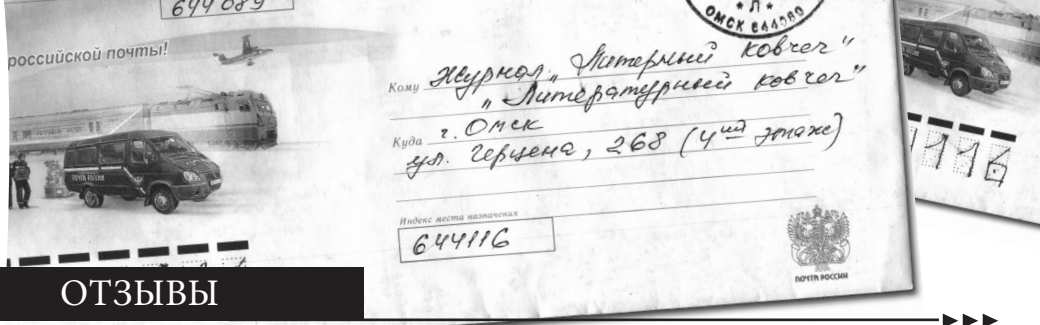 644089
российской почты!
ПОЧТА РОССИИ
* Л *
ОМСК 644089
Кому Журнал „Литерный ковчег"
„Литературный ковчег"
Куда г. Омск
ул. Герцена, 268 (4ый этаж)
Индекс места назначения
644116
ПОЧТА РОССИИ
116
ОТЗЫВЫ